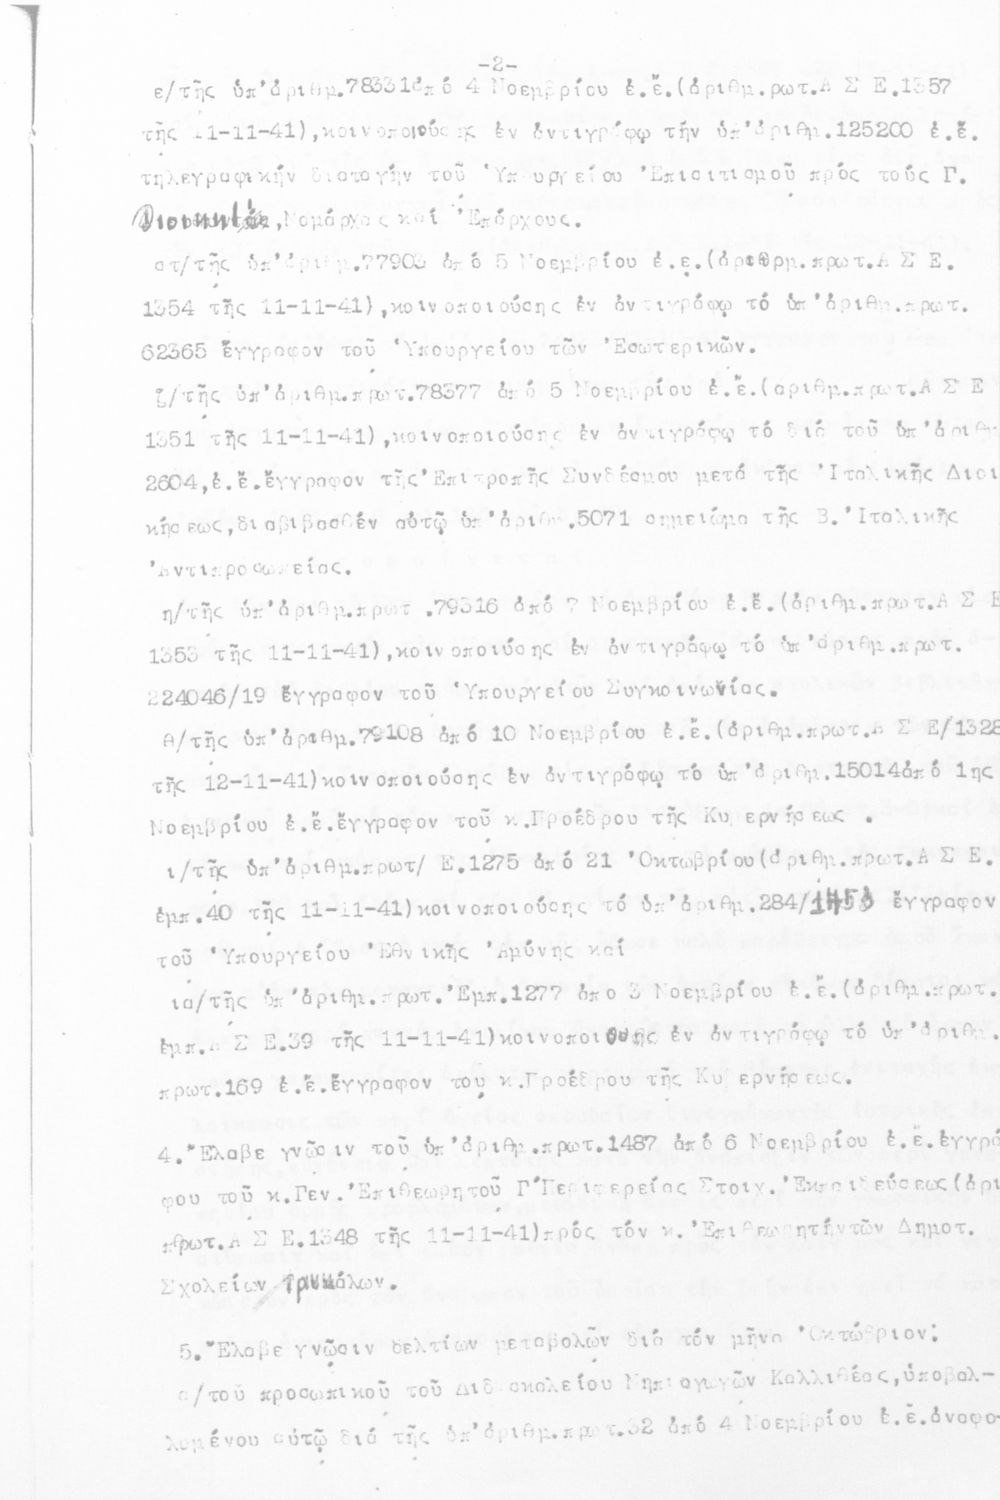 -2-
ε/τῆς ὑπ'ἀριθμ.78331ἀπό 4 Νοεμβρίου ἐ.ἔ.(ἀριθμ.ρωτ.Α Σ Ε.1357
τῆς 11-11-41),κοινοποιούσης ἐν ἀντιγράφῳ τήν ὑπ'ἀριθμ.125200 ἐ.ἔ.
τηλεγραφικήν διαταγήν τοῦ Ὑπουργείου Ἐπισιτισμοῦ πρός τούς Γ.
Διοικητάς,Νομάρχας καί Ἐπάρχους.
στ/τῆς ὑπ'ἀριθμ.77903 ἀπό 5 Νοεμβρίου ἐ.ἐ.(ἀριθρμ.πρωτ.Α Σ Ε.
1354 τῆς 11-11-41),κοινοποιούσης ἐν ἀντιγράφῳ τό ὑπ'ἀριθμ.πρωτ.
62365 ἔγγραφον τοῦ Ὑπουργείου τῶν Ἐσωτερικῶν.
ζ/τῆς ὑπ'ἀριθμ.πρωτ.78377 ἀπό 5 Νοεμβρίου ἐ.ἔ.(ἀριθμ.πρωτ.Α Σ Ε
1351 τῆς 11-11-41),κοινοποιούσης ἐν ἀντιγράφῳ τό διά τοῦ ὑπ'ἀριθμ
2604,ἐ.ἔ.ἔγγραφον τῆς Ἐπιτροπῆς Συνδέσμου μετά τῆς Ἰταλικῆς Διοι
κήσεως,διαβιβασθέν αὐτῷ ὑπ'ἀριθμ.5071 σημείωμα τῆς Β.Ἰταλικῆς
Ἀντιπροσωπείας.
η/τῆς ὑπ'ἀριθμ.πρωτ .79316 ἀπό 7 Νοεμβρίου ἐ.ἔ.(ἀριθμ.πρωτ.Α Σ Ε
1353 τῆς 11-11-41),κοινοποιύσης ἐν ἀντιγράφῳ τό ὑπ'ἀριθμ.πρωτ.
224046/19 ἔγγραφον τοῦ Ὑπουργείου Συγκοινωνίας.
θ/τῆς ὑπ'ἀριθμ.79108 ἀπό 10 Νοεμβρίου ἐ.ἔ.(ἀριθμ.πρωτ.Α Σ Ε/1328
τῆς 12-11-41)κοινοποιούσης ἐν ἀντιγράφῳ τό ὑπ'ἀριθμ.15014ἀπό 1ης
Νοεμβρίου ἐ.ἔ.ἔγγραφον τοῦ κ.Προέδρου τῆς Κυβερνήσεως .
ι/τῆς ὑπ'ἀριθμ.πρωτ/ Ε.1275 ἀπό 21 Ὀκτωβρίου(ἀριθμ.πρωτ.Α Σ Ε.
ἐμπ.40 τῆς 11-11-41)κοινοποιούσης τό ὑπ'ἀριθμ.284/1453 ἔγγραφον
τοῦ Ὑπουργείου Ἐθνικῆς Ἀμύνης καί
ια/τῆς ὑπ'ἀριθμ.πρωτ.Ἐμπ.1277 ἀπο 3 Νοεμβρίου ἐ.ἔ.(ἀριθμ.πρωτ.
ἐμπ.Α Σ Ε.39 τῆς 11-11-41)κοινοποιούσης ἐν ἀντιγράφῳ τό ὑπ'ἀριθμ.
πρωτ.169 ἐ.ἔ.ἔγγραφον του κ.Προέδρου τῆς Κυβερνήσεως.
4.Ἔλαβε γνῶσιν τοῦ ὑπ'ἀριθμ.πρωτ.1487 ἀπό 6 Νοεμβρίου ἐ.ἔ.ἐγγρά
φου τοῦ κ.Γεν.Ἐπιθεωρητοῦ Γ'Περιφερείας Στοιχ.Ἐκπαιδεύσεως(ἀρι
πρωτ.Α Σ Ε.1348 τῆς 11-11-41)πρός τόν κ.Ἐπιθεωρητήντῶν Δημοτ.
Σχολείων Τρικάλων.
5.Ἔλαβε γνῶσιν δελτίων μεταβολῶν διά τόν μῆνα Ὀκτώβριον:
α/τοῦ προσωπικοῦ τοῦ Διδασκαλείου Νηπιαγωγῶν Καλλιθέας,ὑποβαλ-
λομένου αὐτῷ διά τῆς ὑπ'ἀριθμ.πρωτ.32 ἀπό 4 Νοεμβρίου ἐ.ἔ.ἀναφο-